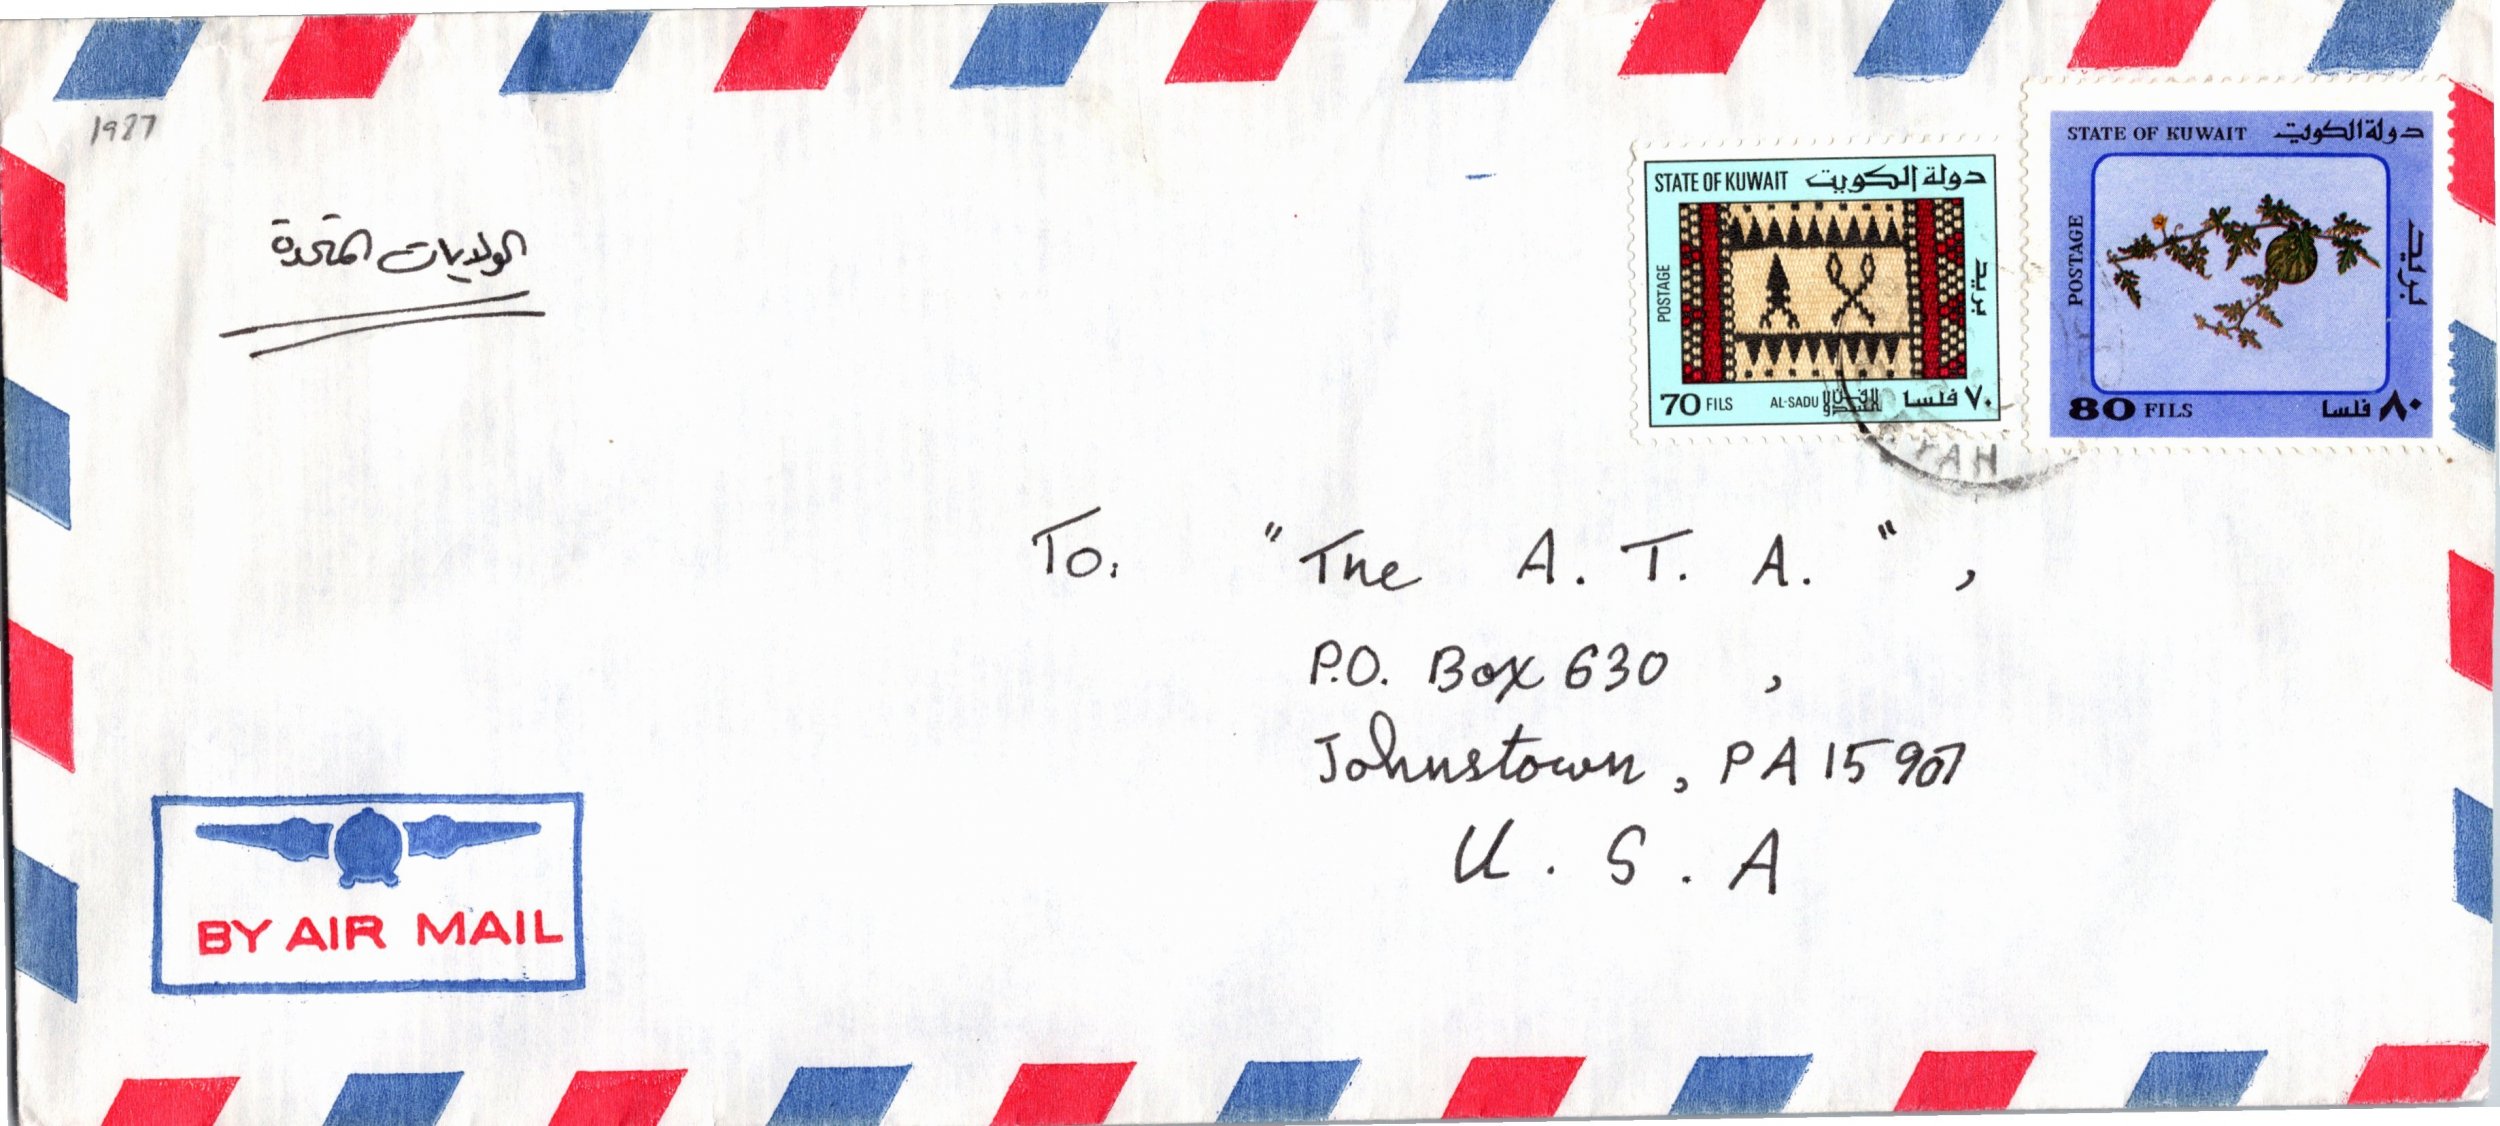 1987
الولايات المتحدة
STATE OF KUWAIT دولة الكويت
POSTAGE
بريد
70 FILS AL-SADU السدو ٧٠ فلسا
STATE OF KUWAIT دولة الكويت
POSTAGE
بريد
80 FILS ٨٠ فلسا
YAH
To: "The A. T. A.",
P.O. Box 630 ,
Johnstown, PA 15907
U. S. A
BY AIR MAIL